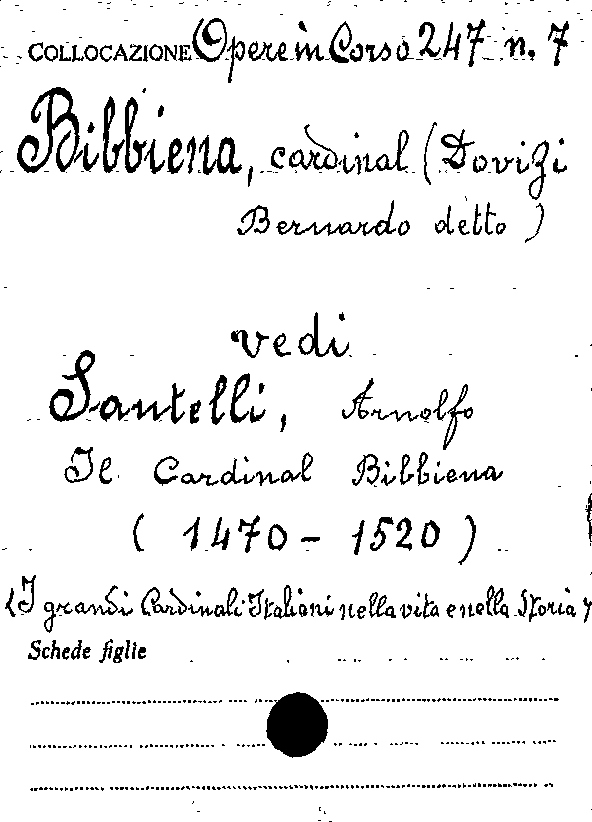 COLLOCAZIONE Opere in Corso 247 n. 7
Bibbiena, cardinal (Dovizi
Bernardo detto)
vedi
Santelli, Arnolfo
Il Cardinal Bibbiena
(1470-1520)
(I grandi Cardinali Italiani nella vita e nella Storia)
Schede figlie